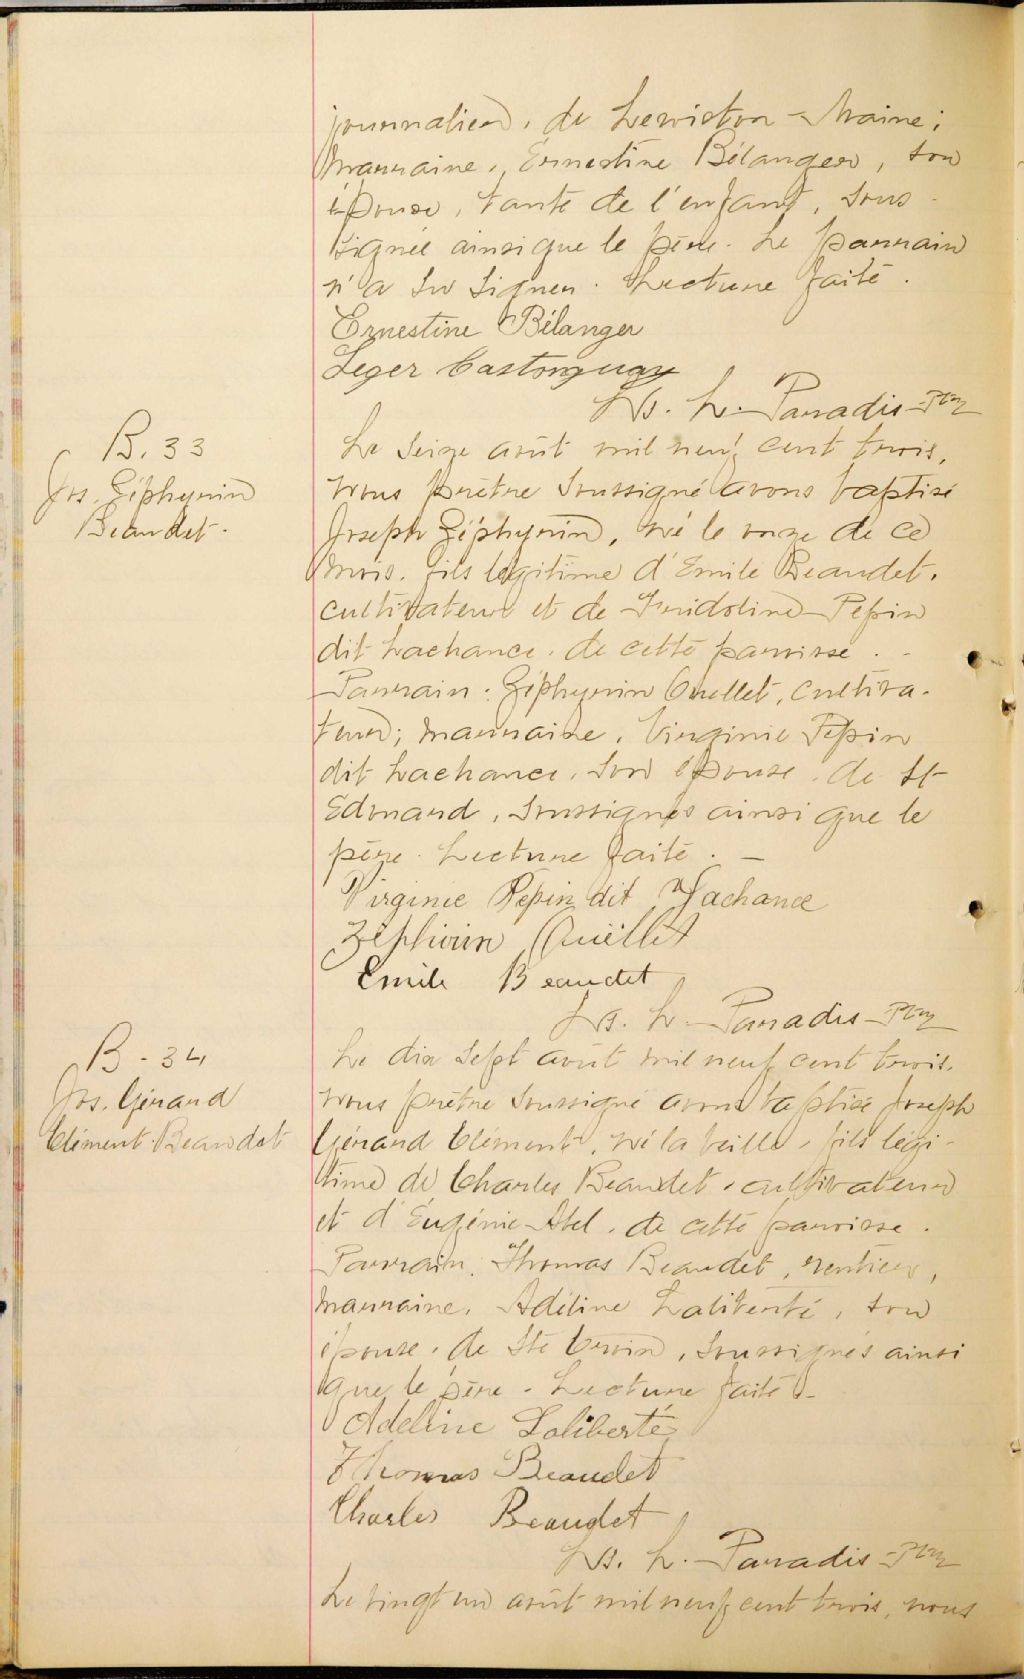 journalier, de Lewiston - Maine;
marraine, Ernestine Bélanger, son
épouse, tante de l'enfant, sous-
signée ainsi que le père. Le parrain
n'a su signer. Lecture faite.
Ernestine Bélanger
Leger Castonguay
Ls. L. Paradis Ptre
B. 33
Jos. Zéphyrin
Beaudet.
Le seize août mil neuf cent trois,
nous prêtre soussigné avons baptisé
Joseph Zéphyrin, né le onze de ce
mois, fils légitime d'Emile Beaudet,
cultivateur et de Fridoline Pepin
dit Lachance, de cette paroisse.
Parrain: Zéphyrin Ouellet, cultiva-
teur; marraine, Virginie Pepin
dit Lachance, son épouse, de St
Edouard, soussignés ainsi que le
père. Lecture faite. -
Virginie Pépin dit Lachance
Zéphirin Ouellet
Emile Beaudet
Ls. L. Paradis Ptre
B - 34
Jos. Gérard
Clément Beaudet
Le dix sept août mil neuf cent trois,
nous prêtre soussigné avons baptisé Joseph
Gérard Clément, né la veille, fils légi-
time de Charles Beaudet, cultivateur
et d'Eugénie Abel, de cette paroisse.
Parrain, Thomas Beaudet, rentier,
marraine, Adéline Laliberté, son
épouse, de Ste Croix, soussignés ainsi
que le père. Lecture faite. -
Adeline Laliberté
Thomas Beaudet
Charles Beaudet
Ls. L. Paradis Ptre
Le vingt un août mil neuf cent trois, nous